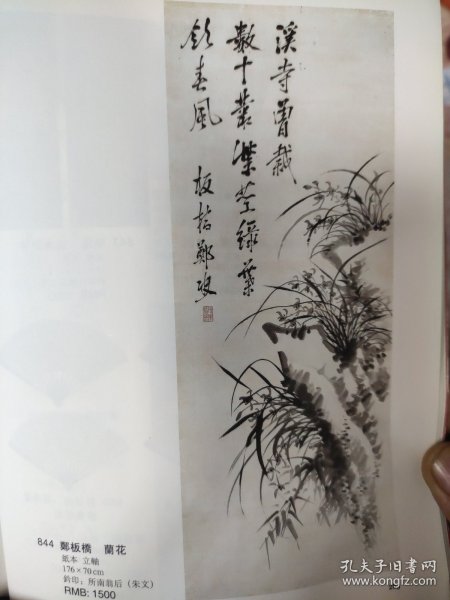 溪寺曾栽
數十叢紫莖綠葉
春風
板橋鄭燮
844 鄭板橋 蘭花
紙本 立軸
176×70cm
鈐印：所南翁后（朱文）
RMB: 1500
孔夫子旧书网